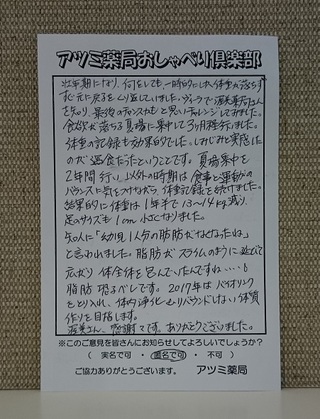 アツミ薬局おしゃべり倶楽部
壮年期になり、何をしても一時的にしか体重が落ちず
すぐ元に戻るをくり返していました。
を知り、最後のチャンスかもと思いチャレンジしてみました。
食欲が落ちる夏場に集中して3ヶ月施行しました。
体重の記録も効果的でした。しみじみと実感した
のが過食だったということです。夏場集中を
2年間行い、以外の時期は食事と運動の
バランスに気をつけながら、体重記録を続けました。
結果的に体重は1年半で13〜14kg減り、
足のサイズも1cm小さくなりました。
知人に「幼児1人分の脂肪がなくなったね」
と言われました。脂肪がスライムのように延びて
広がり体全体を包んでいたんですね‥‥
脂肪恐るべしです。2017年はバイオリンク
をとり入れ、体内浄化しリバウンドしない体質
作りを目指します。
渥美さん、感謝です。ありがとうございました。
※このご意見を皆さんにお知らせしてよろしいでしょうか?
( 実名で可 ・ 匿名で可 ・ 不可 )
ご協力ありがとうございます。 アツミ薬局